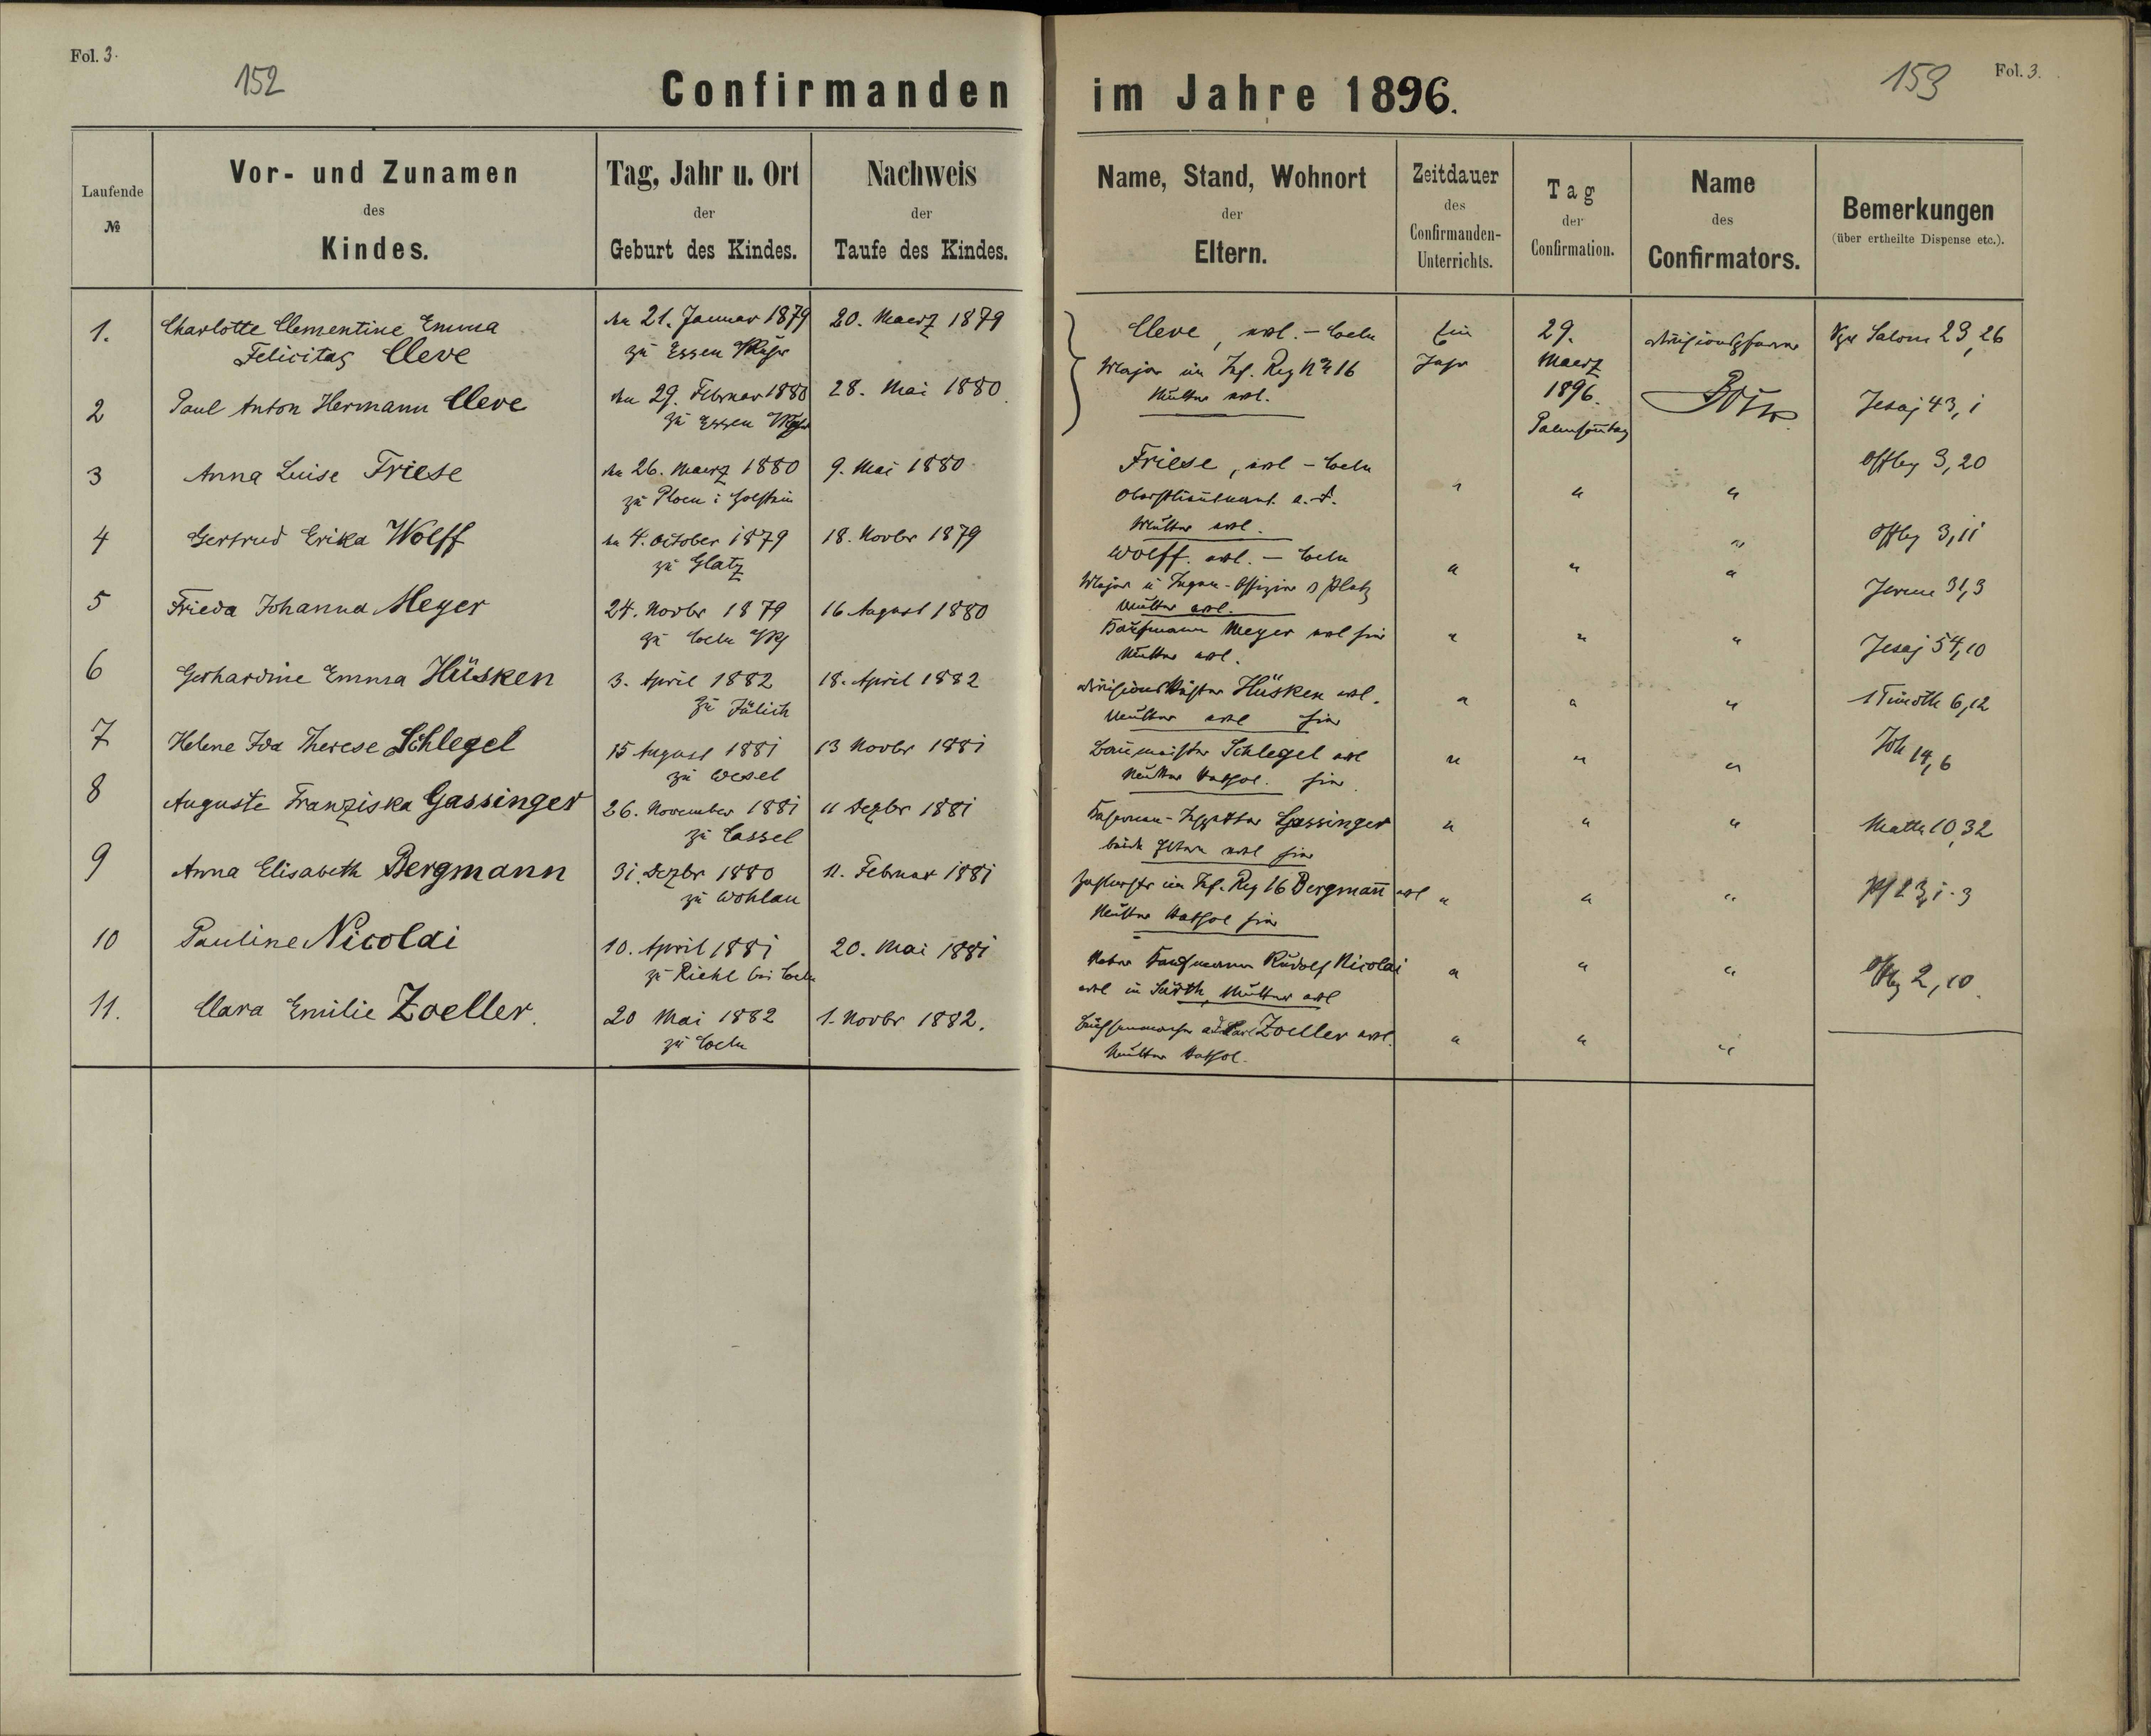 Fol. 3.
152
Confirmanden
Laufende
№
Vor- und Zunamen
des
Kindes.
Tag, Jahr u. Ort
der
Geburt des Kindes.
Nachweis
der
Taufe des Kindes.
1. Charlotte Clementine Emma den 21. Januar 1879 20. Maerz 1879
Felicitas Cleve zu Essen
2 Paul Anton Hermann Cleve den 29. Februar 1880 28. Mai 1880.
zu Essen
3 Anna Luise Friese den 26. Maerz 1880 9. Mai 1880
zu Ploen i Holstein
4 Gertrud Erika Wolff den 4. October 1879 18. Novbr 1879
zu Glatz
5 Frieda Johanna Meyer 24. Novbr 1879 16 August 1880
zu Coeln
6 Gerhardine Emma Hüsken 3. April 1882 18. April 1882
zu Jülich
7 Helene Ida Therese Schlegel 15 August 1881 13 Novbr 1881
zu Wesel
8 Auguste Franziska Gassinger 26. November 1881 11 Dezbr 1881
zu Cassel
9 Anna Elisabeth Bergmann 31. Dezbr 1880 11. Februar 1881
zu Wohlau
10 Pauline Nicolai 10. April 1881 20. Mai 1881
zu Riehl bei Coeln
11. Clara Emilie Zoeller. 20 Mai 1882 1. Novbr 1882.
zu Coeln
153
Fol. 3.
im Jahre 1896.
Name, Stand, Wohnort
der
Eltern.
Zeitdauer
des
Confirmanden-
Unterrichts.
Tag
der
Confirmation.
Name
des
Confirmators.
Bemerkungen
(über ertheilte Dispense etc.).
Cleve, evgl. - Coeln Ein 29. Divisionspfarrer Salom 23,26
Major im Inf. Reg No 16 Jahr Maerz
Mutter evgl. 1896. Jesaj 43,1
Palmsontag
Friese, evgl - Coeln Offbg 3,20
Oberstlieutenant. a. D. " " "
Mutter evgl.
Wolff. evgl. - Coeln " Offbg 3,11
Major u Ingen-Offizier v Platz " " "
Mutter evgl. Jerem 31,3
Kaufmann Meyer evgl hier " " "
Mutter evgl. Jesaj 54,10
Divisionsküster Hüsken evgl. " " " 1 Timoth 6,12
Mutter evgl hier
Baumeister Schlegel evgl " " " Joh 14,6
Mutter kathol. hier.
Kasernen-Inspektor Gassinger " " " Matth 10,32
beide Eltern evgl hier
im Inf. Reg 16 Bergmann evgl " " " Ps 23,1-3
Mutter kathol hier
Vater Kaufmann Rudolf Nicolai " " " Offbg 2,10.
evgl in Sürth, Mutter evgl
Büchsenmacher a. D. Carl Zoeller evgl. " " "
Mutter kathol.